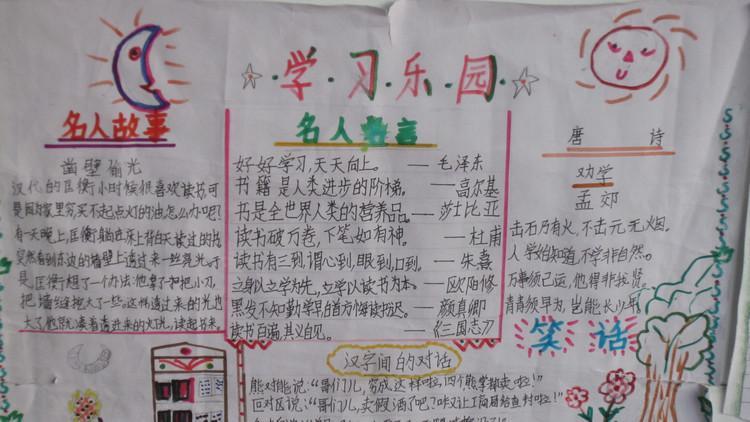 学·习·乐·园
名人故事
凿壁偷光
汉代的匡衡小时候很喜欢读书可
是因为家里穷买不起点灯的油怎么办呢?
有一天晚上,匡衡躺在床上背白天读过的书
突然看到东边的墙壁上透过来一丝亮光于
是,匡衡想了一个办法:他拿了把把小刀,
把墙缝挖大了一些,这样透过来的光也
大了他就凑着透进来的灯光,读起书来。
名人名言
好好学习,天天向上。 — 毛泽东
书籍是人类进步的阶梯。 — 高尔基
书是全世界人类的营养品。— 莎士比亚
读书破万卷,下笔如有神。 — 杜甫
读书有三到,谓心到,眼到,口到。 — 朱熹
立身以立学为先,立学以读书为本。— 欧阳修
黑发不知勤学早白首方悔读书迟。— 颜真卿
读书百遍,其义自见。 — 《三国志》
唐 诗
劝学
孟郊
击石乃有火,不击元无烟。
人学始知道,不学非自然。
万事须己运,他得非我贤。
青春须早为,岂能长少年。
笑 话
汉字间的对话
熊对能说:“哥们儿,穷成这样啦,四个熊掌都卖啦!”
叵对区说:“哥们儿,卖假酒了吧?咋又让工商局给查封啦!”